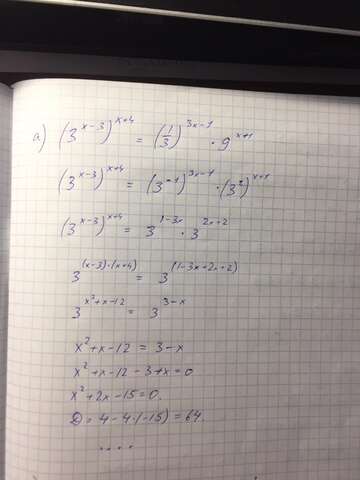 а) (3^(x-3))^(x+4) = (1/3)^(3x-1) · 9^(x+1)
(3^(x-3))^(x+4) = (3^(-1))^(3x-1) · (3^2)^(x+1)
(3^(x-3))^(x+4) = 3^(1-3x) · 3^(2x+2)
3^((x-3)·(x+4)) = 3^((1-3x+2x+2))
3^(x^2+x-12) = 3^(3-x)
x^2+x-12 = 3-x
x^2+x-12-3+x=0
x^2+2x-15=0.
D=4-4·(-15)=64.
....